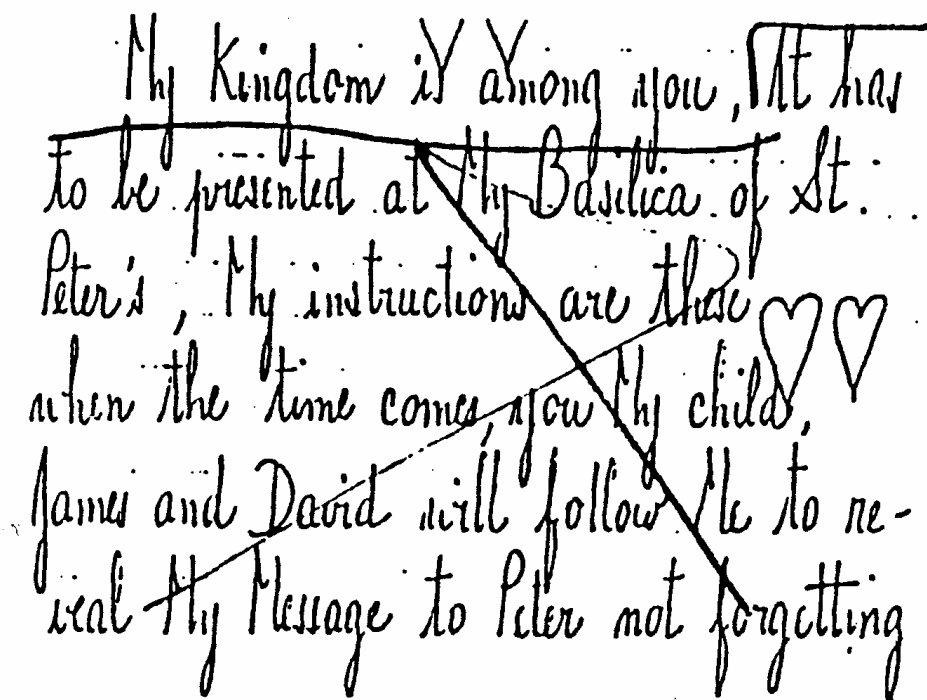 My Kingdom is among you, It has
to be presented at My Basilica of St.
Peter's, My instructions are these
when the time comes, you My child,
James and David will follow Me to re-
veal My Message to Peter not forgetting